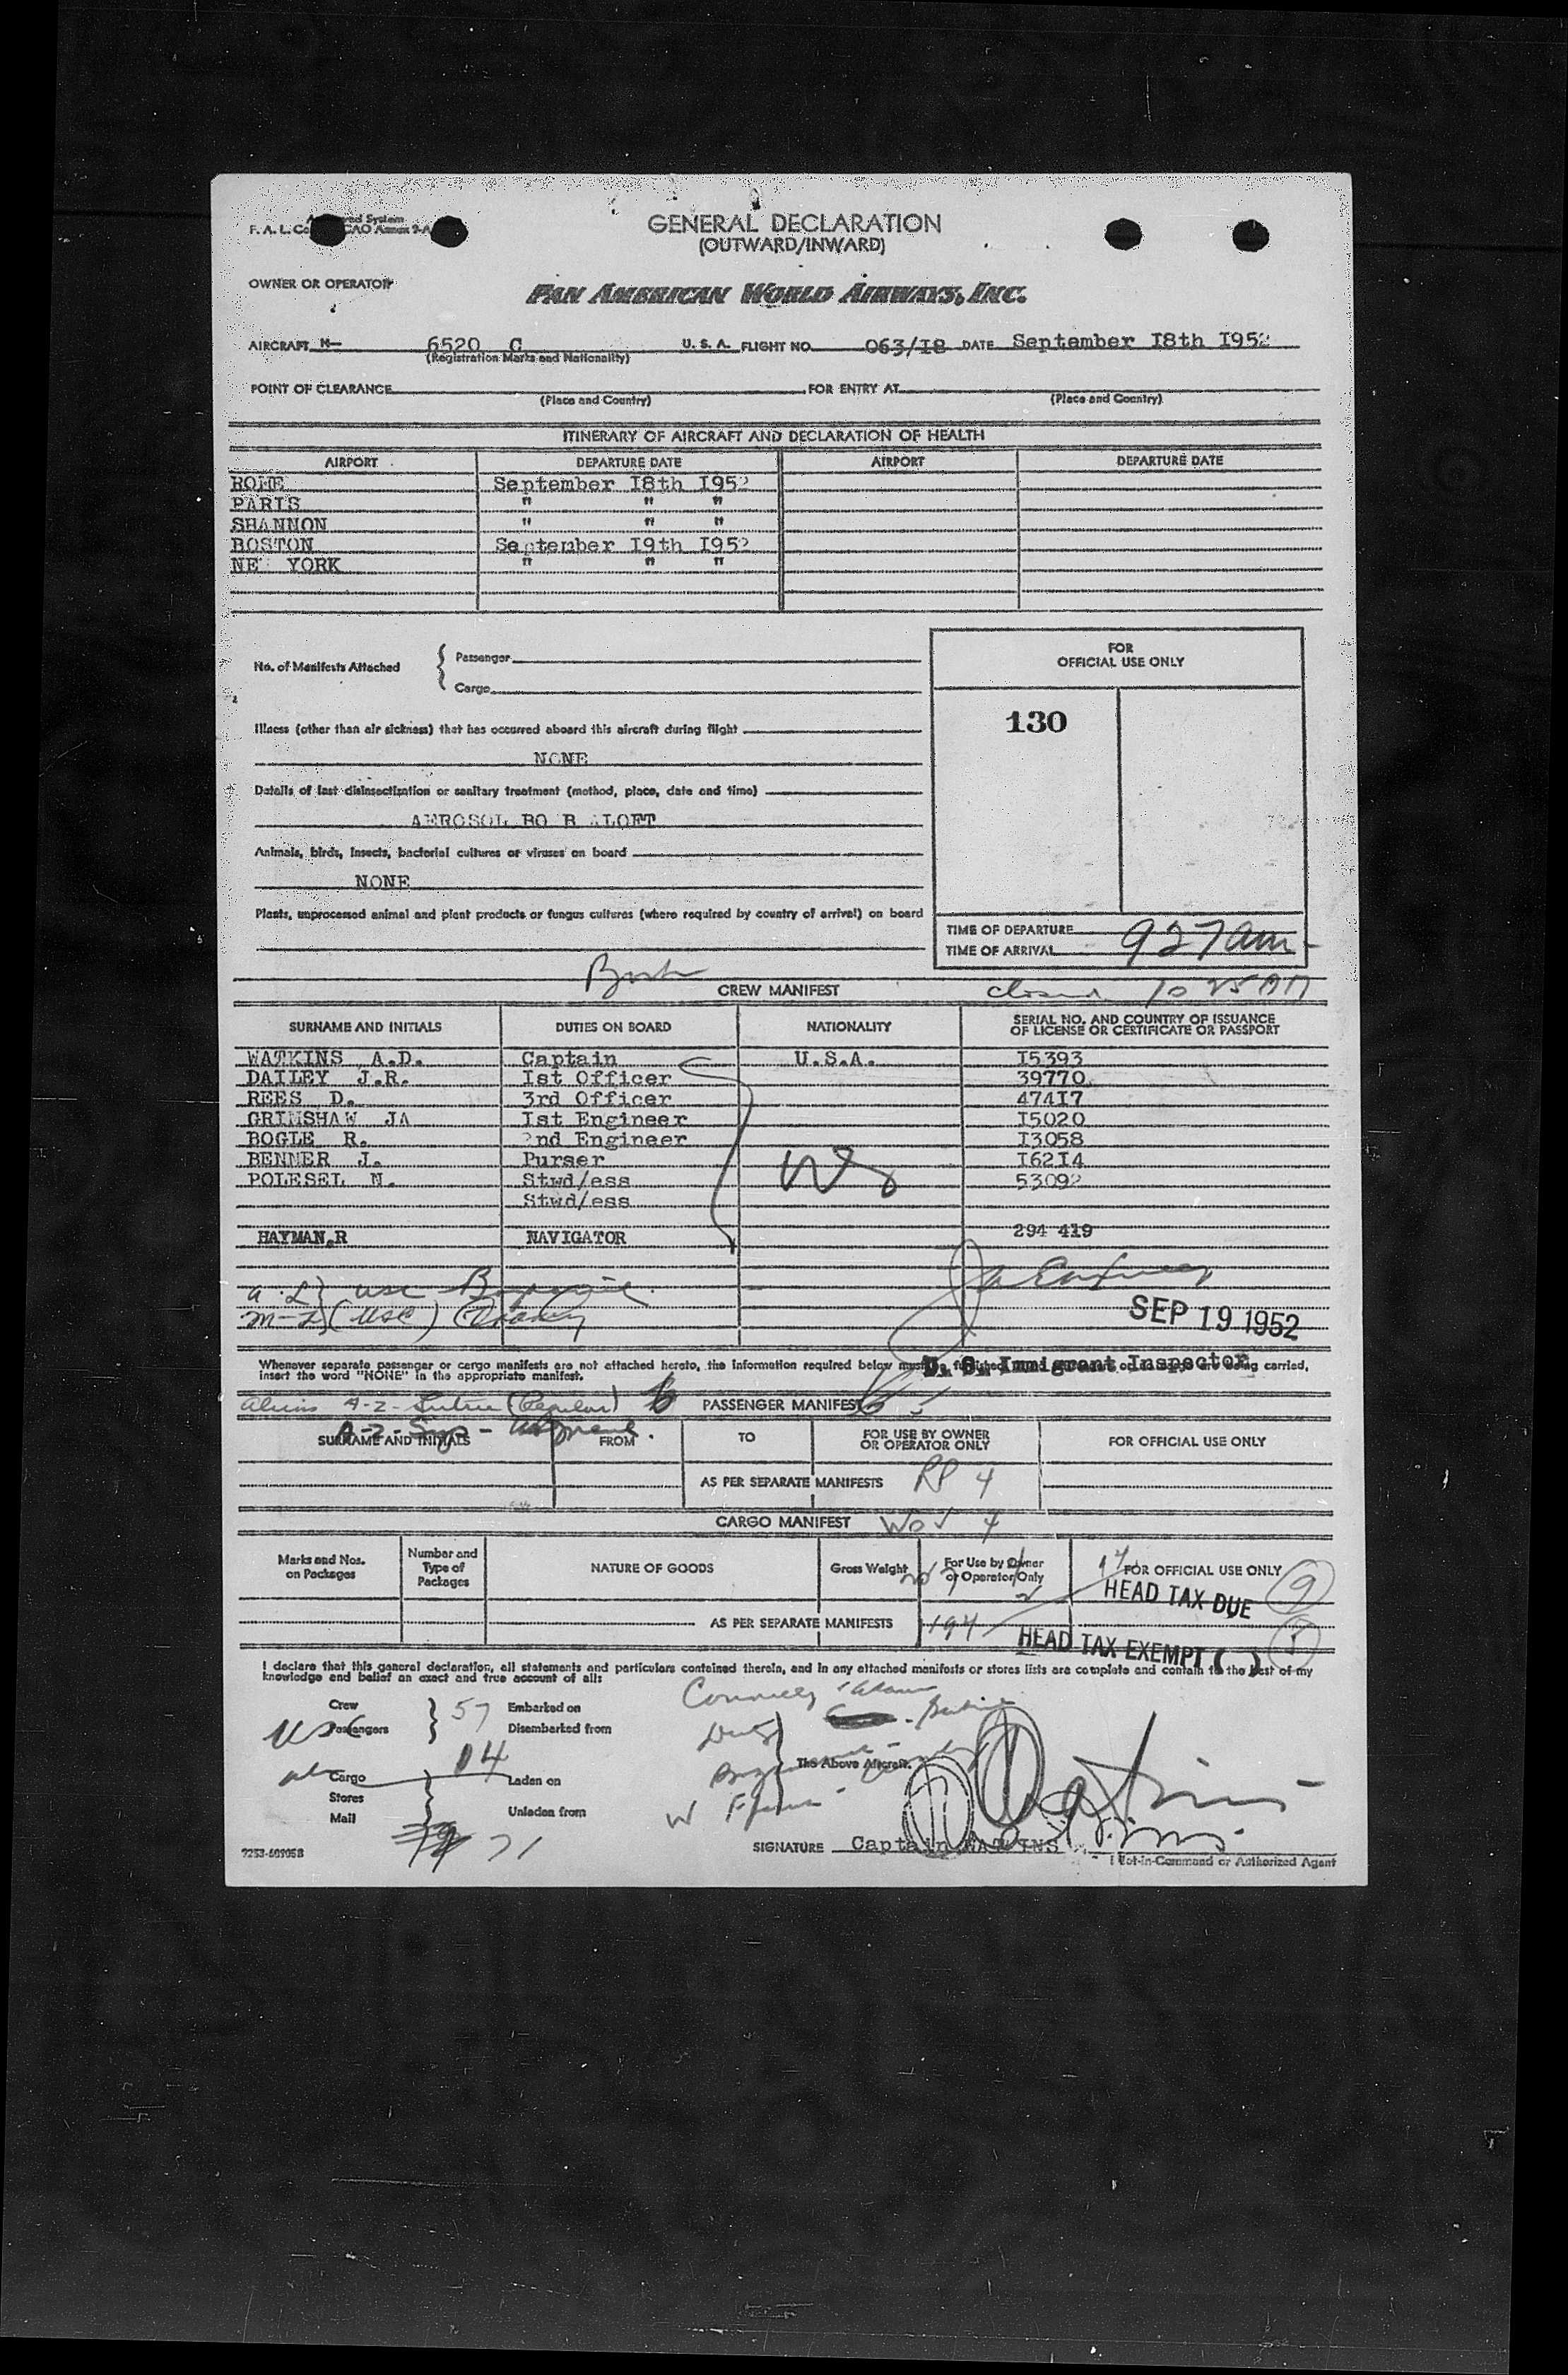 GENERAL DECLARATION
(OUTWARD/INWARD)
OWNER OR OPERATOR
PAN AMERICAN WORLD AIRWAYS, INC.
AIRCRAFT N- 6520 C U. S. A. FLIGHT NO. 063/I8 DATE September I8th I952
(Registration Marks and Nationality)
POINT OF CLEARANCE FOR ENTRY AT
(Place and Country) (Place and Country)
ITINERARY OF AIRCRAFT AND DECLARATION OF HEALTH
AIRPORT DEPARTURE DATE AIRPORT DEPARTURE DATE
ROME September I8th I952
PARIS " " "
SHANNON " " "
BOSTON September I9th I952
NEW YORK " " "
FOR
OFFICIAL USE ONLY
No. of Manifests Attached
Passenger
Cargo
130
Illness (other than air sickness) that has occurred aboard this aircraft during flight
NONE
Details of last disinsectization or sanitary treatment (method, place, date and time)
AEROSOL BO B ALOFT
Animals, birds, insects, bacterial cultures or viruses on board
NONE
Plants, unprocessed animal and plant products or fungus cultures (where required by country of arrival) on board
TIME OF DEPARTURE
TIME OF ARRIVAL 927am
CREW MANIFEST closed 10 25 AM
SURNAME AND INITIALS DUTIES ON BOARD NATIONALITY SERIAL NO. AND COUNTRY OF ISSUANCE
OF LICENSE OR CERTIFICATE OR PASSPORT
WATKINS A.D. Captain U.S.A. I5393
DAILEY J.R. Ist Officer 39770
REES D. 3rd Officer 474I7
GRIMSHAW JA Ist Engineer I5020
BOGLE R. 2nd Engineer I3058
BENNER J. Purser I62I4
POLESEL N. Stwd/ess 53092
Stwd/ess
HAYMAN.R NAVIGATOR 294 419
SEP 19 1952
U. S. Immigrant Inspector
Whenever separate passenger or cargo manifests are not attached hereto, the information required below must be furnished carried,
insert the word "NONE" in the appropriate manifest.
PASSENGER MANIFEST
SURNAME AND INITIALS FROM TO FOR USE BY OWNER
OR OPERATOR ONLY FOR OFFICIAL USE ONLY
AS PER SEPARATE MANIFESTS RP 4
CARGO MANIFEST
Marks and Nos.
on Packages
Number and
Type of
Packages
NATURE OF GOODS Gross Weight For Use by Owner
or Operator Only FOR OFFICIAL USE ONLY
HEAD TAX DUE 9
AS PER SEPARATE MANIFESTS 194
HEAD TAX EXEMPT ( )
I declare that this general declaration, all statements and particulars contained therein, and in any attached manifests or stores lists are complete and contain to the best of my
knowledge and belief an exact and true account of all:
Crew
Passengers
57
Embarked on
Disembarked from
USC
The Above Aircraft.
Cargo
Stores
Mail
14
Laden on
Unladen from
71
SIGNATURE Captain WATKINS
Pilot-in-Command or Authorized Agent